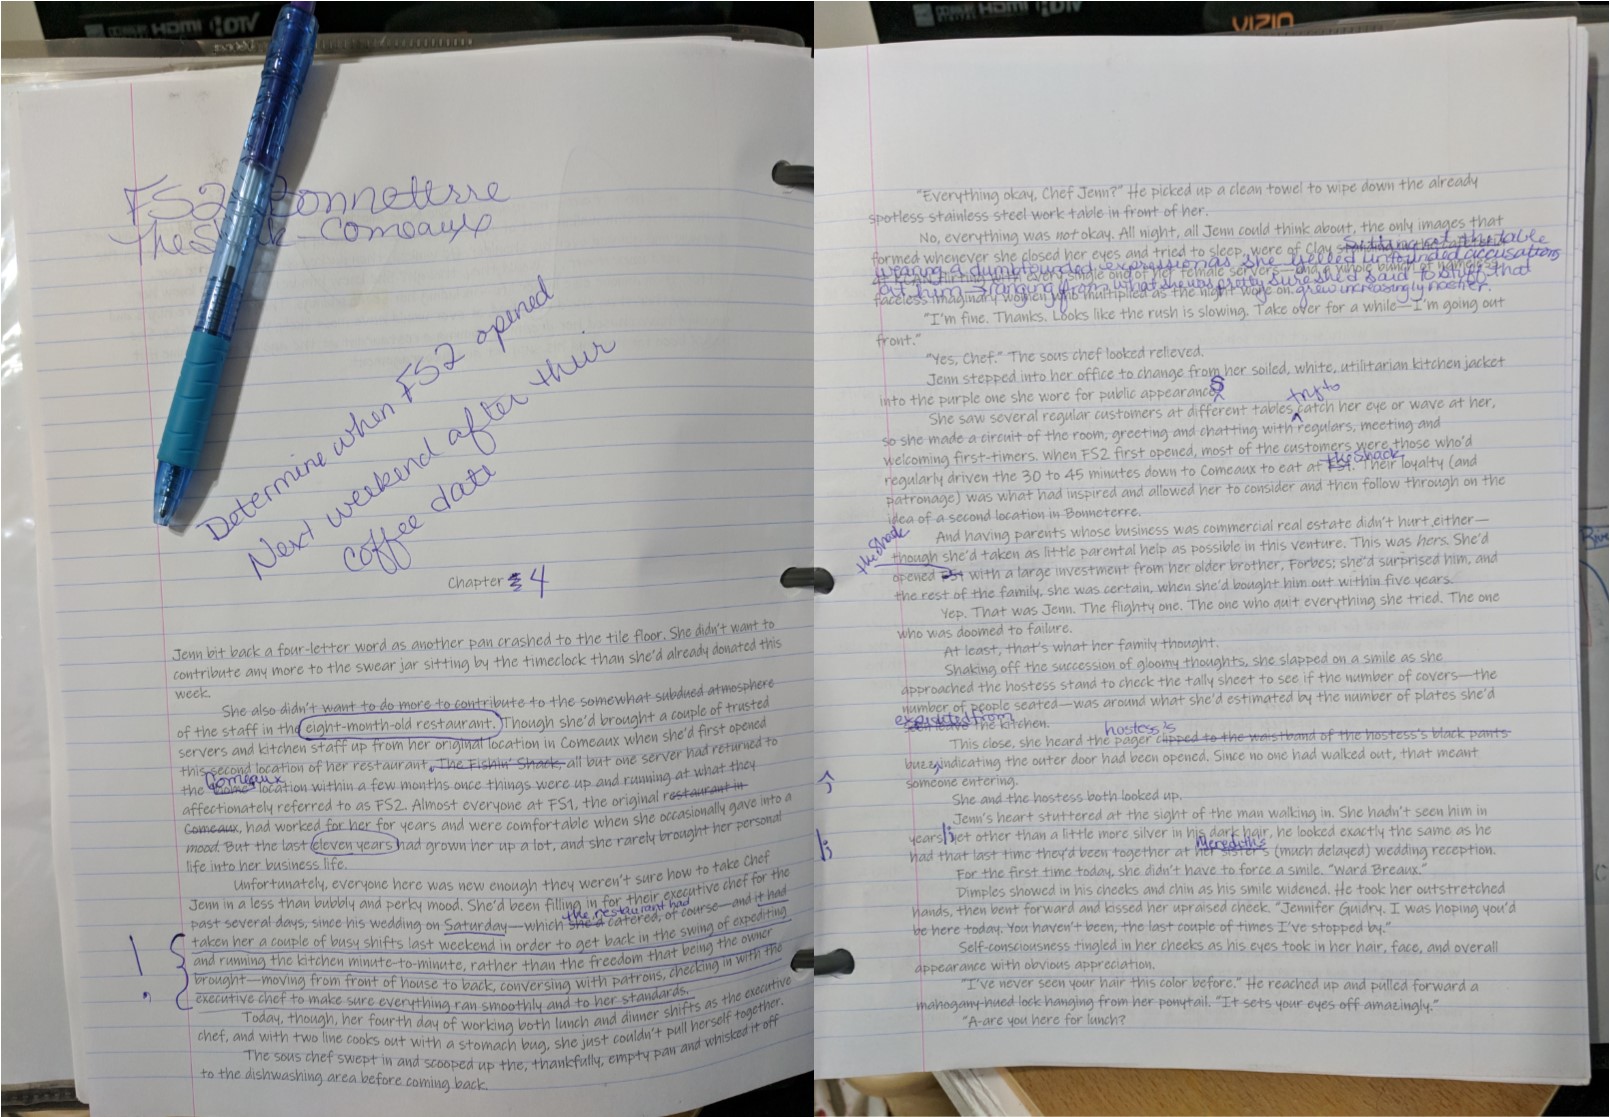 HDMI HDTV
FS2 - Bonneterre
The Shack - Comeaux
Determine when FS2 opened
Next weekend after their
coffee date
Chapter 3 4
Jenn bit back a four-letter word as another pan crashed to the tile floor. She didn't want to
contribute any more to the swear jar sitting by the timeclock than she'd already donated this
week.
She also didn't want to do more to contribute to the somewhat subdued atmosphere
of the staff in the eight-month-old restaurant. Though she'd brought a couple of trusted
servers and kitchen staff up from her original location in Comeaux when she'd first opened
this second location of her restaurant, The Fishin' Shack, all but one server had returned to
Comeaux
the home location within a few months once things were up and running at what they
affectionately referred to as FS2. Almost everyone at FS1, the original restaurant in
Comeaux, had worked for her for years and were comfortable when she occasionally gave into a
mood. But the last eleven years had grown her up a lot, and she rarely brought her personal
life into her business life.
Unfortunately, everyone here was new enough they weren't sure how to take Chef
Jenn in a less than bubbly and perky mood. She'd been filling in for their executive chef for the
the restaurant had
past several days, since his wedding on Saturday—which she'd catered, of course—and it had
taken her a couple of busy shifts last weekend in order to get back in the swing of expediting
and running the kitchen minute-to-minute, rather than the freedom that being the owner
brought—moving from front of house to back, conversing with patrons, checking in with the
executive chef to make sure everything ran smoothly and to her standards.
!
Today, though, her fourth day of working both lunch and dinner shifts as the executive
chef, and with two line cooks out with a stomach bug, she just couldn't pull herself together.
The sous chef swept in and scooped up the, thankfully, empty pan and whisked it off
to the dishwashing area before coming back.
HDMI HDTV
VIZIO
"Everything okay, Chef Jenn?" He picked up a clean towel to wipe down the already
spotless stainless steel work table in front of her.
No, everything was not okay. All night, all Jenn could think about, the only images that
formed whenever she closed her eyes and tried to sleep, were of Clay
sitting at the table
wearing a dumbfounded expression as she yelled unfounded accusations
at him—ranging from what she was pretty sure she'd said to stuff that
grew increasingly nastier.
female servers—and a whole bunch of nameless,
faceless imaginary women who multiplied as the night wore on.
"I'm fine. Thanks. Looks like the rush is slowing. Take over for a while—I'm going out
front."
"Yes, Chef." The sous chef looked relieved.
Jenn stepped into her office to change from her soiled, white, utilitarian kitchen jacket
into the purple one she wore for public appearances
try to
She saw several regular customers at different tables catch her eye or wave at her,
so she made a circuit of the room, greeting and chatting with regulars, meeting and
welcoming first-timers. When FS2 first opened, most of the customers were those who'd
the Shack
regularly driven the 30 to 45 minutes down to Comeaux to eat at FS1. Their loyalty (and
patronage) was what had inspired and allowed her to consider and then follow through on the
idea of a second location in Bonneterre.
And having parents whose business was commercial real estate didn't hurt, either—
the Shack
though she'd taken as little parental help as possible in this venture. This was hers. She'd
opened FS1 with a large investment from her older brother, Forbes; she'd surprised him, and
the rest of the family, she was certain, when she'd bought him out within five years.
Yep. That was Jenn. The flighty one. The one who quit everything she tried. The one
who was doomed to failure.
At least, that's what her family thought.
Shaking off the succession of gloomy thoughts, she slapped on a smile as she
approached the hostess stand to check the tally sheet to see if the number of covers—the
number of people seated—was around what she'd estimated by the number of plates she'd
expedited from
seen leave the kitchen.
hostess's
This close, she heard the pager clipped to the waistband of the hostess's black pants
buzz, indicating the outer door had been opened. Since no one had walked out, that meant
someone entering.
She and the hostess both looked up.
Jenn's heart stuttered at the sight of the man walking in. She hadn't seen him in
years; yet other than a little more silver in his dark hair, he looked exactly the same as he
Meredith's
had that last time they'd been together at her sister's (much delayed) wedding reception.
For the first time today, she didn't have to force a smile. "Ward Breaux."
Dimples showed in his cheeks and chin as his smile widened. He took her outstretched
hands, then bent forward and kissed her upraised cheek. "Jennifer Guidry. I was hoping you'd
be here today. You haven't been, the last couple of times I've stopped by."
Self-consciousness tingled in her cheeks as his eyes took in her hair, face, and overall
appearance with obvious appreciation.
"I've never seen your hair this color before." He reached up and pulled forward a
mahogany-hued lock hanging from her ponytail. "It sets your eyes off amazingly."
"A-are you here for lunch?